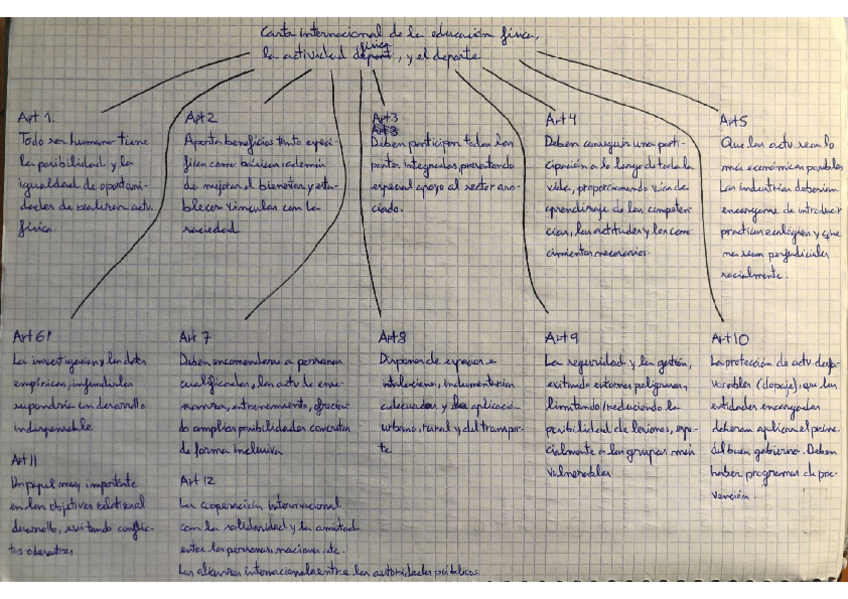 Carta internacional de la educación física,
la actividad física, y el deporte
Art 1.
Todo ser humano tiene
la posibilidad y la
igualdad de oportuni-
dades de realizar activ.
física.
Art 2
Aporta beneficios tanto especí-
ficos como básicos, además
de mejorar el bienestar, y esta-
blecer vínculos con la
sociedad
Art 3
Deben participar todas las
partes integradas, prestando
especial apoyo al sector aso-
ciado.
Art 4
Deben conseguir una parti-
cipación a lo largo de toda la
vida, proporcionando vías de
aprendizaje de las competen-
cias, las actitudes y los cono-
cimientos necesarios.
Art 5
Que las activ. sean lo
más económicas posibles
Las industrias deberían
encargarse de introducir
prácticas ecológicas y que
no sean perjudiciales
socialmente.
Art 6
La investigación y los datos
empíricos,
supondría un desarrollo
indispensable
Art 7
Deben encomendarse a personas
cualificadas, las activ de ense-
ñanza, entrenamiento, ofrecien-
do amplias posibilidades concretas
de forma inclusiva
Art 8
Disponer de espacios e
instalaciones,
adecuadas y la aplicación
urbano, rural y del transpor-
te
Art 9
La seguridad y la gestión,
evitando entornos peligrosos,
limitando/reduciendo la
posibilidad de lesiones, espe-
cialmente a los grupos más
vulnerables
Art 10
La protección de activ desfa-
vorables (dopaje), que las
entidades encargadas
deberan aplicar el princ.
del buen gobierno. Deben
haber programas de pre-
vención
Art 11
Un papel muy importante
en los objetivos
desarrollo, evitando conflic-
tos
Art 12
La cooperación internacional
con la solidaridad y la amistad
entre las personas, naciones, etc.
Las alianzas internacionales entre las autoridades públicas